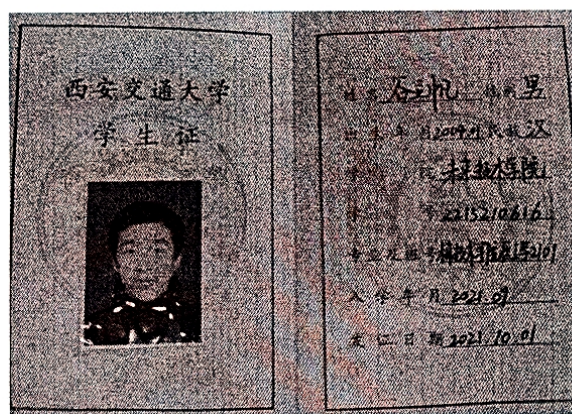 西安交通大学
学生证
姓名 谷 帆 性别 男
出生年月 2004. 民族 汉
未来技术学院
学号 2215210616
专业及班号 2101
入学年月 2021.09
发证日期 2021.10.01